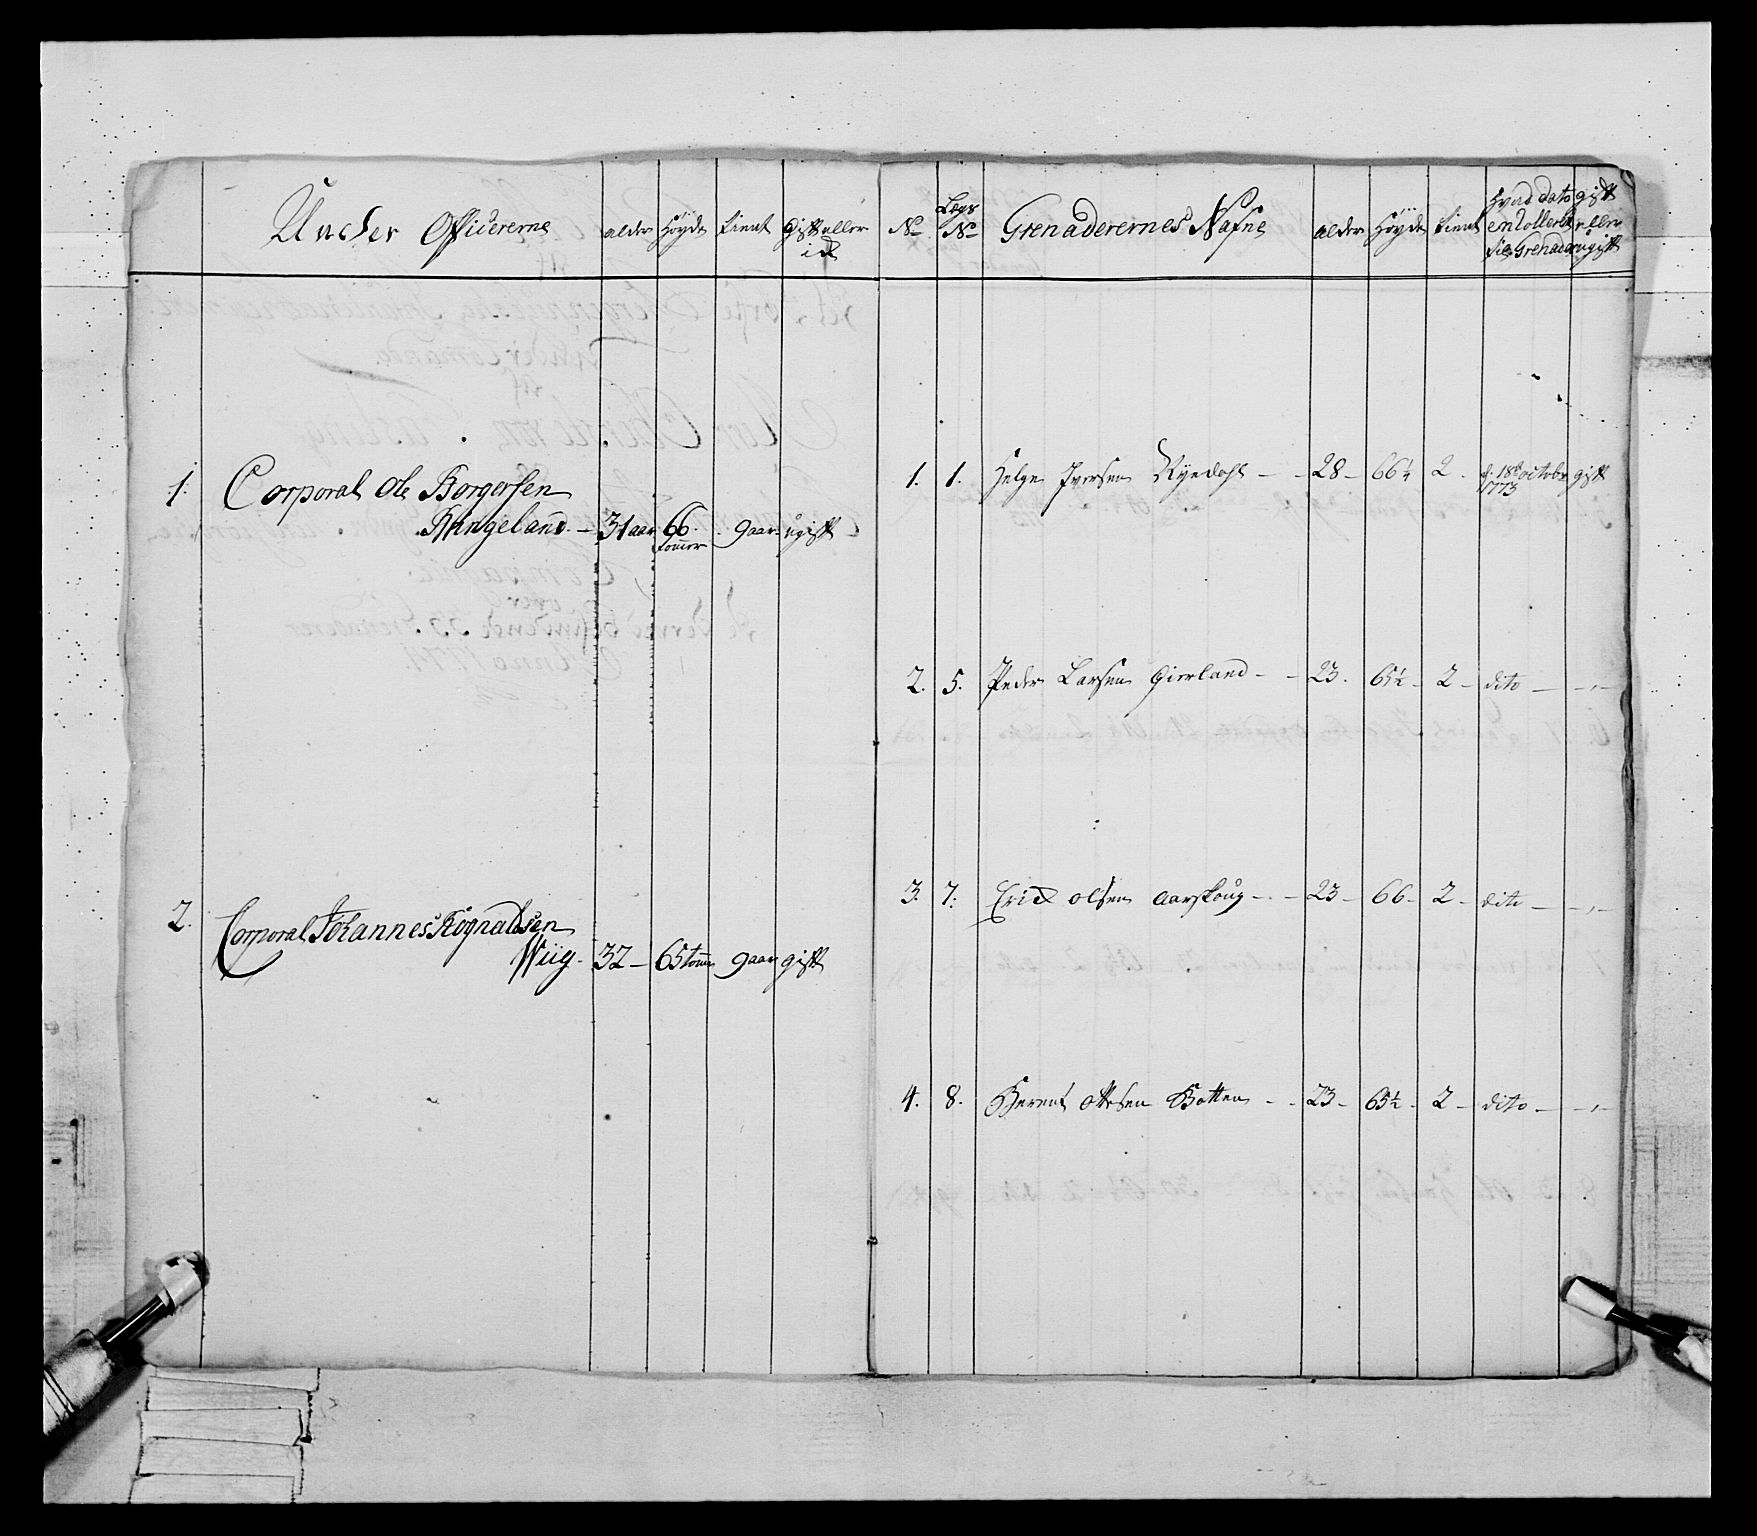 Under Officererne alder Höyde tient Gift eller
ei
1. Corporal Ole Borgersen
Ringeland. — 31 aar 66 tomer 9 aar ugift
2. Corporal Johannes Rognaldsen
Wiig. 32 — 65 tom 9 aar gift
No Lægs No Grenaderernes Nafne alder Höyde tient Hvad dato enrollerit til Grenader gift eller ugift
1. 1. Helge Iversen Ryedahl — 28 — 66 ¼ 2. d. 18de octobr 1773 gift
2. 5. Peder Larsen Gierland — 23. 65 ½ — 2 — dito — — „ —
3. 7. Erich Olsen Aarskoug — 23 — 66 — 2 — dito — — „ —
4. 8. Berent Ottesen Botten — 23 — 65 ½ — 2 — dito — — „ —